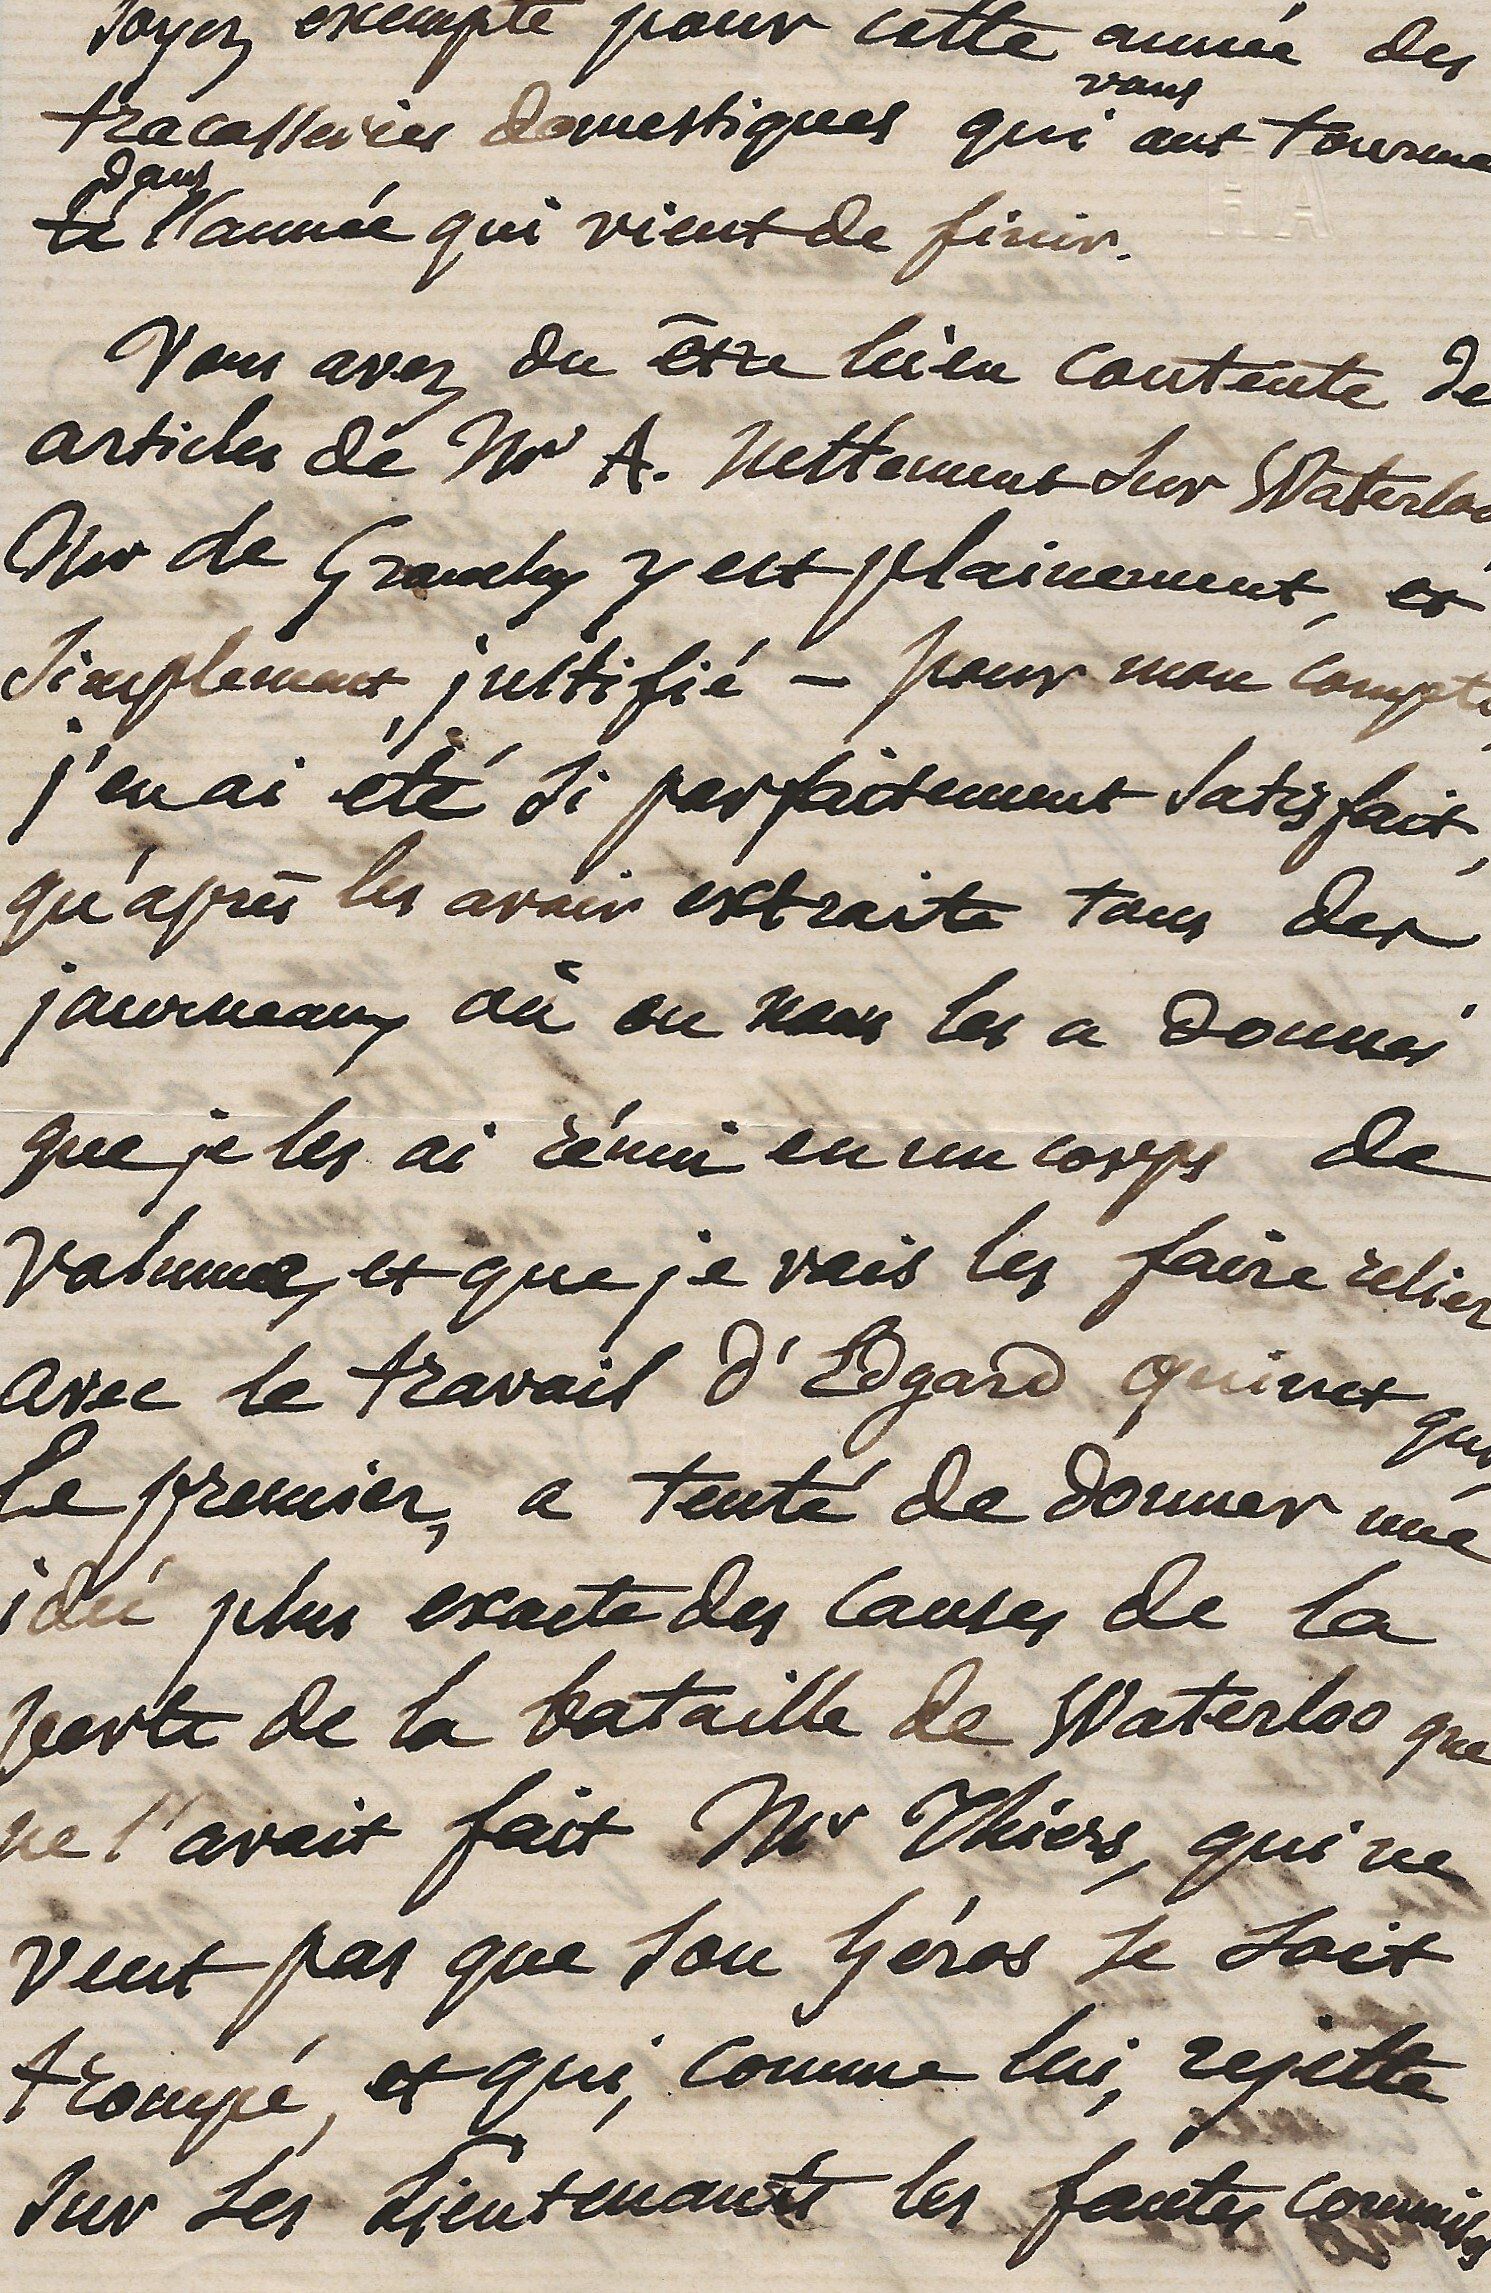 soyez exempte pour cette année des
vous
tracasseries domestiques qui ont tourmen
dans
té l'année qui vient de finir.
Vous avez du être bien contente de
articles de Mr A. Nettement sur Waterloo
Mr de Grouchy y est plainement, et
simplement justifié – pour mon compte
j'en ai été si parfaitement satisfait,
qu'après les avoir extraite tous des
journeaux où on nous les a donnés
que je les ai réuni en un corps de
volume, et que je vais les faire relier
avec le travail d'Edgard Quinet qui
le premier, a tenté de donner une
idée plus exacte des causes de la
perte de la bataille de Waterloo que
ne l'avait fait Mr Thiers, qui ne
veut pas que son héros se soit
trompé, et qui, comme lui, rejette
sur ses lieutenants les fautes commises
HA